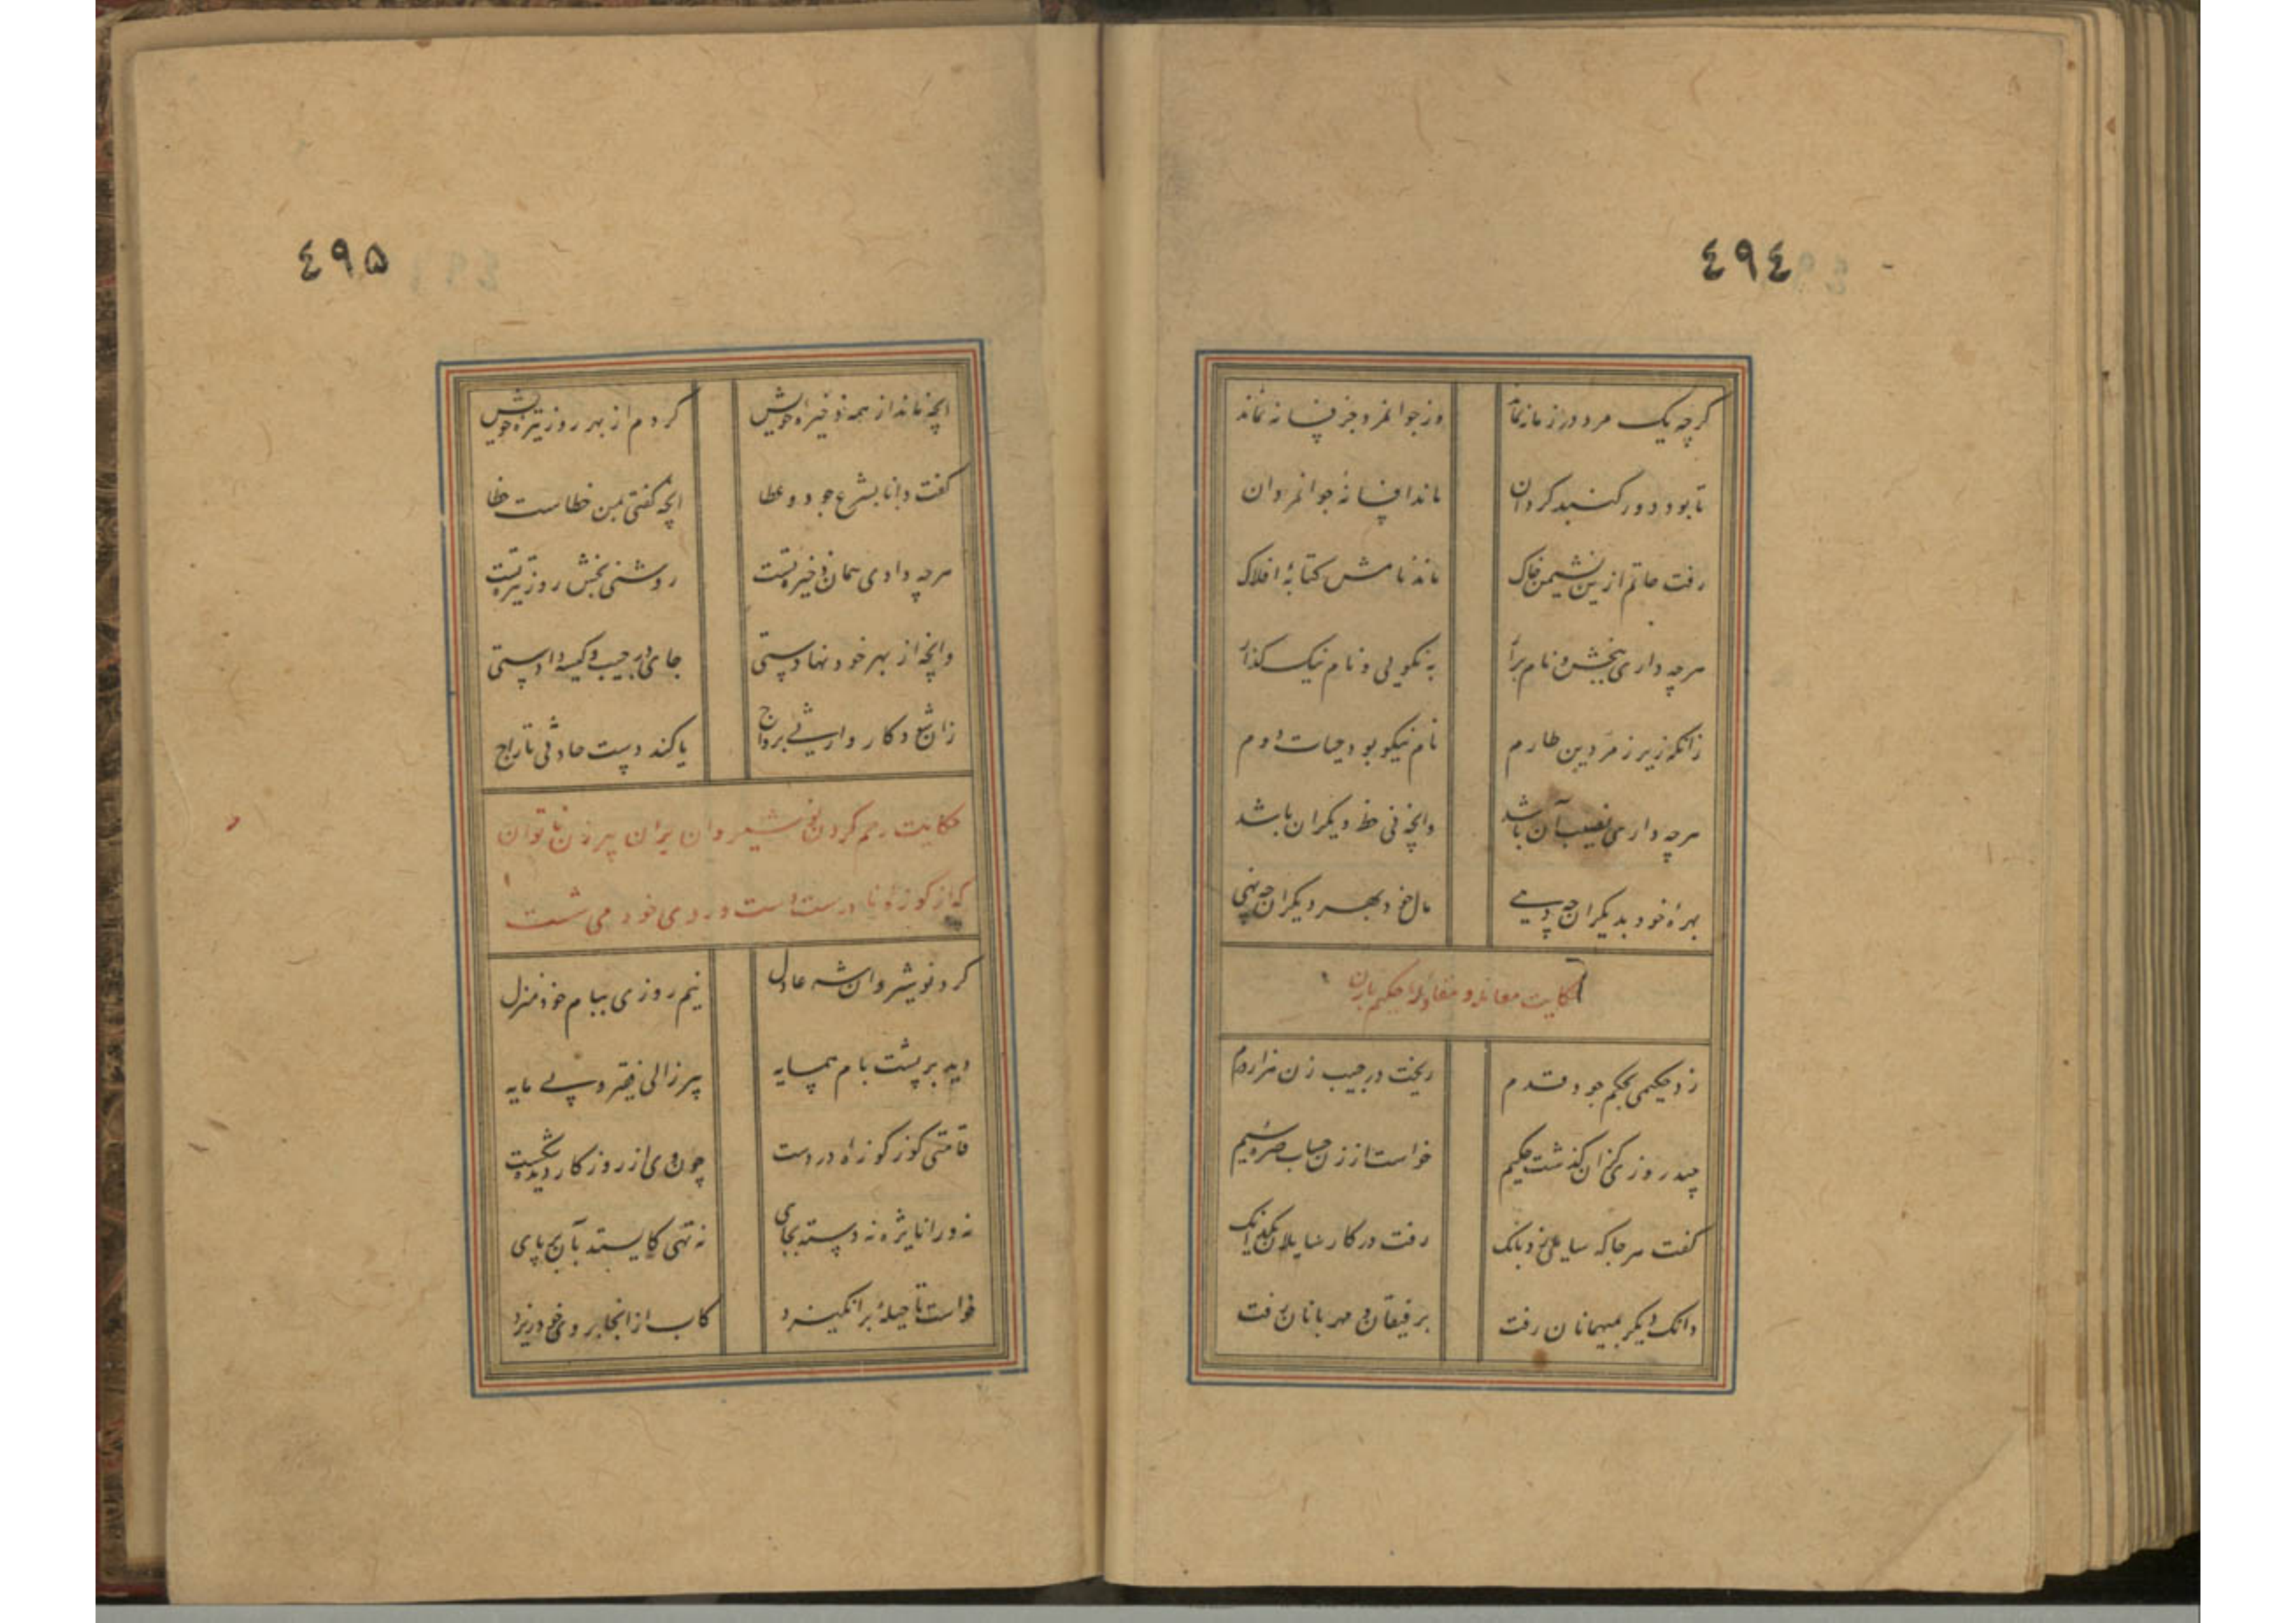 ٤٩٤
گرچه یک مرد در زمانه نماند وز جوانمرد جز فسانه نماند
تا بود دور گنبد گردان ماند افسانهٔ جوانمردان
رفت حاتم ازین نشیمن خاک ماند نامش کتابهٔ افلاک
هرچه داری ببخش و نام برآر به نکویی و نام نیک گذار
زانکه زیر زمردین طارم نام نیکو بود حیات دوم
هرچه داری نصیب آن باشد وانچه نی حظ دیگران باشد
بهرهٔ خود بدیگران چه دهی مال خود بهر دیگران چه نهی
حکایت معامله و مقاوله حکیم بازن
زد حکیمی بحکم جود قدم ریخت در جیب زن هزار درم
چند روزی کزان گذشت حکیم خواست از زن حساب صره و سیم
گفت هرجا که سایلی زد بانک رفت در کار سایلان یکدانک
دانک دیگر بمیهمانان رفت برفیقان و مهربانان رفت
٤٩۵
انچه ماند از همه ذخیرهٔ خویش کردم از بهر روز تیرهٔ خویش
گفت دانا بشرع جود و عطا انچه گفتی بمن خطاست خطا
هرچه دادی همان ذخیره تست روشنی بخش روز تیره تست
وانچه از بهر خود نهادستی جای در جیب و کیسه دادستی
زان شع دکار وارثی برداج یا کند دست حادثی تاراج
حکایت رحم کردن نوشیروان بران پیرزن ناتوان
که از کوزهٔ نادرست دست و روی خود می شست
کرد نوشیروان شه عادل نیم روزی ببام خود منزل
دید بر پشت بام همسایه پیر زالی فقیر و بی مایه
قامتی کوز کوزهٔ در دست چون وی از روزگار دیده شکست
نه ورا نایژه نه دسته بجای نه تهی کایستد بآن بر پای
خواست تا حیلهٔ برانگیزد کاب از انجا بروی خود ریزد